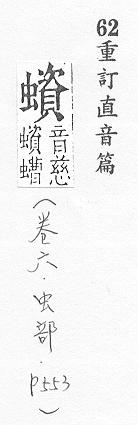 62重訂直音篇
蠀
音慈
蠀螬
(卷六·虫部·p553)